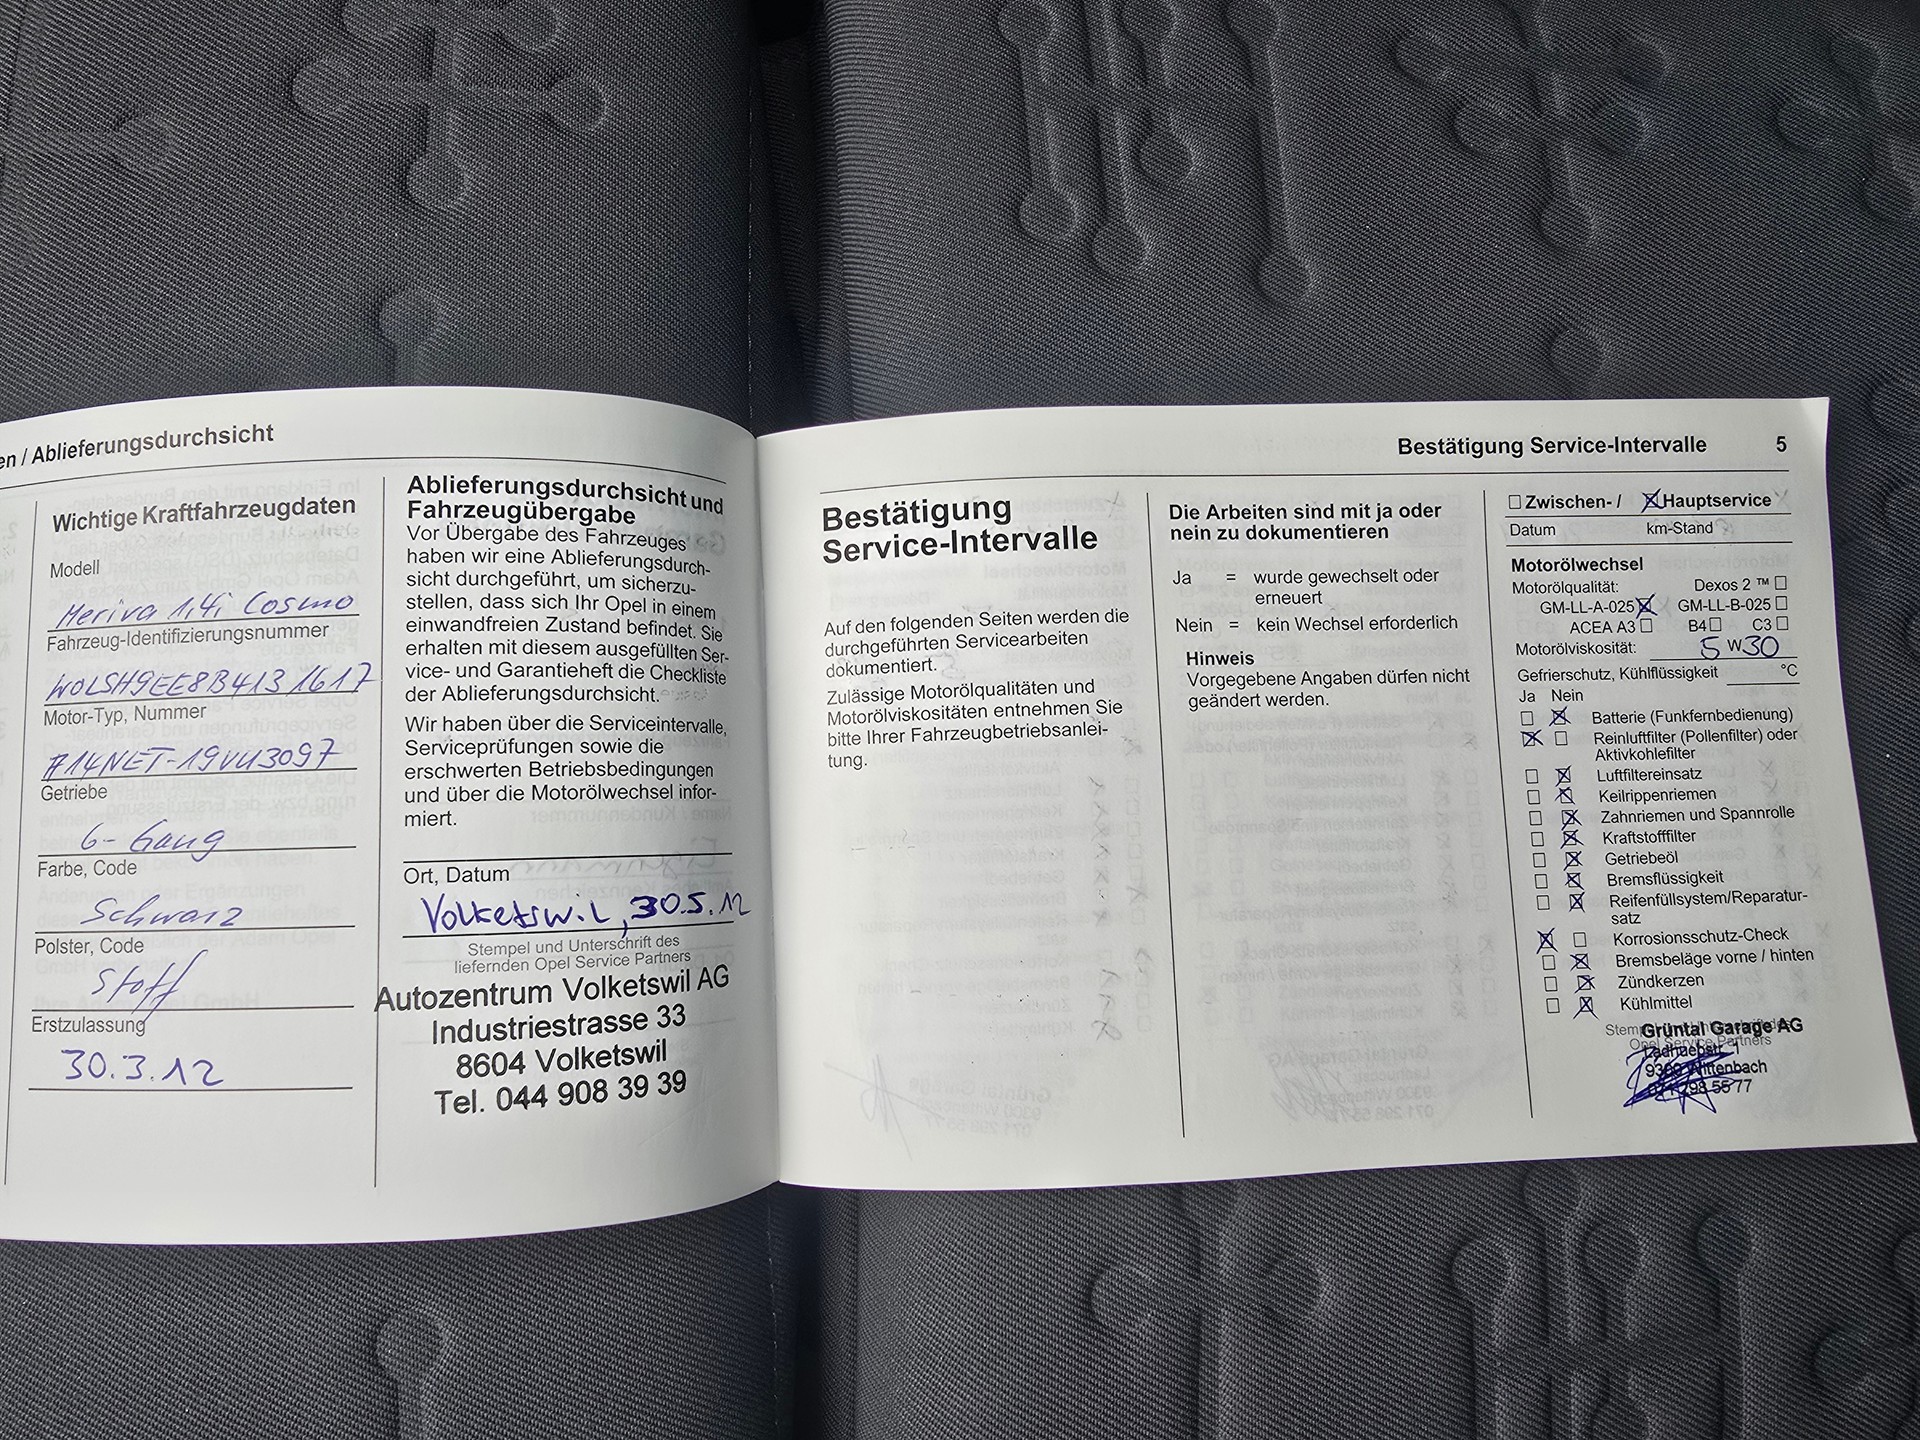 en / Ablieferungsdurchsicht
Wichtige Kraftfahrzeugdaten
Modell
Meriva 1,4i Cosmo
Fahrzeug-Identifizierungsnummer
W0LSH9EE8B4131617
Motor-Typ, Nummer
A14NET-19VU3097
Getriebe
6-Gang
Farbe, Code
Schwarz
Polster, Code
Stoff
Erstzulassung
30.3.12
Ablieferungsdurchsicht und
Fahrzeugübergabe
Vor Übergabe des Fahrzeuges
haben wir eine Ablieferungsdurch-
sicht durchgeführt, um sicherzu-
stellen, dass sich Ihr Opel in einem
einwandfreien Zustand befindet. Sie
erhalten mit diesem ausgefüllten Ser-
vice- und Garantieheft die Checkliste
der Ablieferungsdurchsicht.
Wir haben über die Serviceintervalle,
Serviceprüfungen sowie die
erschwerten Betriebsbedingungen
und über die Motorölwechsel infor-
miert.
Ort, Datum
Volketswil, 30.5.12
Stempel und Unterschrift des
liefernden Opel Service Partners
Autozentrum Volketswil AG
Industriestrasse 33
8604 Volketswil
Tel. 044 908 39 39
Bestätigung Service-Intervalle 5
Bestätigung
Service-Intervalle
Auf den folgenden Seiten werden die
durchgeführten Servicearbeiten
dokumentiert.
Zulässige Motorölqualitäten und
Motorölviskositäten entnehmen Sie
bitte Ihrer Fahrzeugbetriebsanlei-
tung.
Die Arbeiten sind mit ja oder
nein zu dokumentieren
Ja = wurde gewechselt oder
erneuert
Nein = kein Wechsel erforderlich
Hinweis
Vorgegebene Angaben dürfen nicht
geändert werden.
☐ Zwischen- / ☒ Hauptservice
Datum km-Stand
Motorölwechsel
Motorölqualität: Dexos 2 ™ ☐
GM-LL-A-025 ☒ GM-LL-B-025 ☐
ACEA A3 ☐ B4 ☐ C3 ☐
Motorölviskosität: 5 W 30
Gefrierschutz, Kühlflüssigkeit °C
Ja Nein
☐ ☒ Batterie (Funkfernbedienung)
☒ ☐ Reinluftfilter (Pollenfilter) oder
Aktivkohlefilter
☐ ☒ Luftfiltereinsatz
☐ ☒ Keilrippenriemen
☐ ☒ Zahnriemen und Spannrolle
☐ ☒ Kraftstofffilter
☐ ☒ Getriebeöl
☐ ☒ Bremsflüssigkeit
☐ ☒ Reifenfüllsystem/Reparatur-
satz
☒ ☐ Korrosionsschutz-Check
☐ ☒ Bremsbeläge vorne / hinten
☐ ☒ Zündkerzen
☐ ☒ Kühlmittel
Grüntal Garage AG
9300 Wittenbach
071 298 55 77